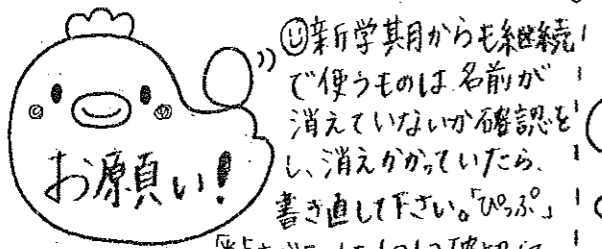 お願い!
新学期からも継続
で使うものは名前が
消えていないか確認を
し、消えかかっていたら、
書き直して下さい。「ぴっぷ」